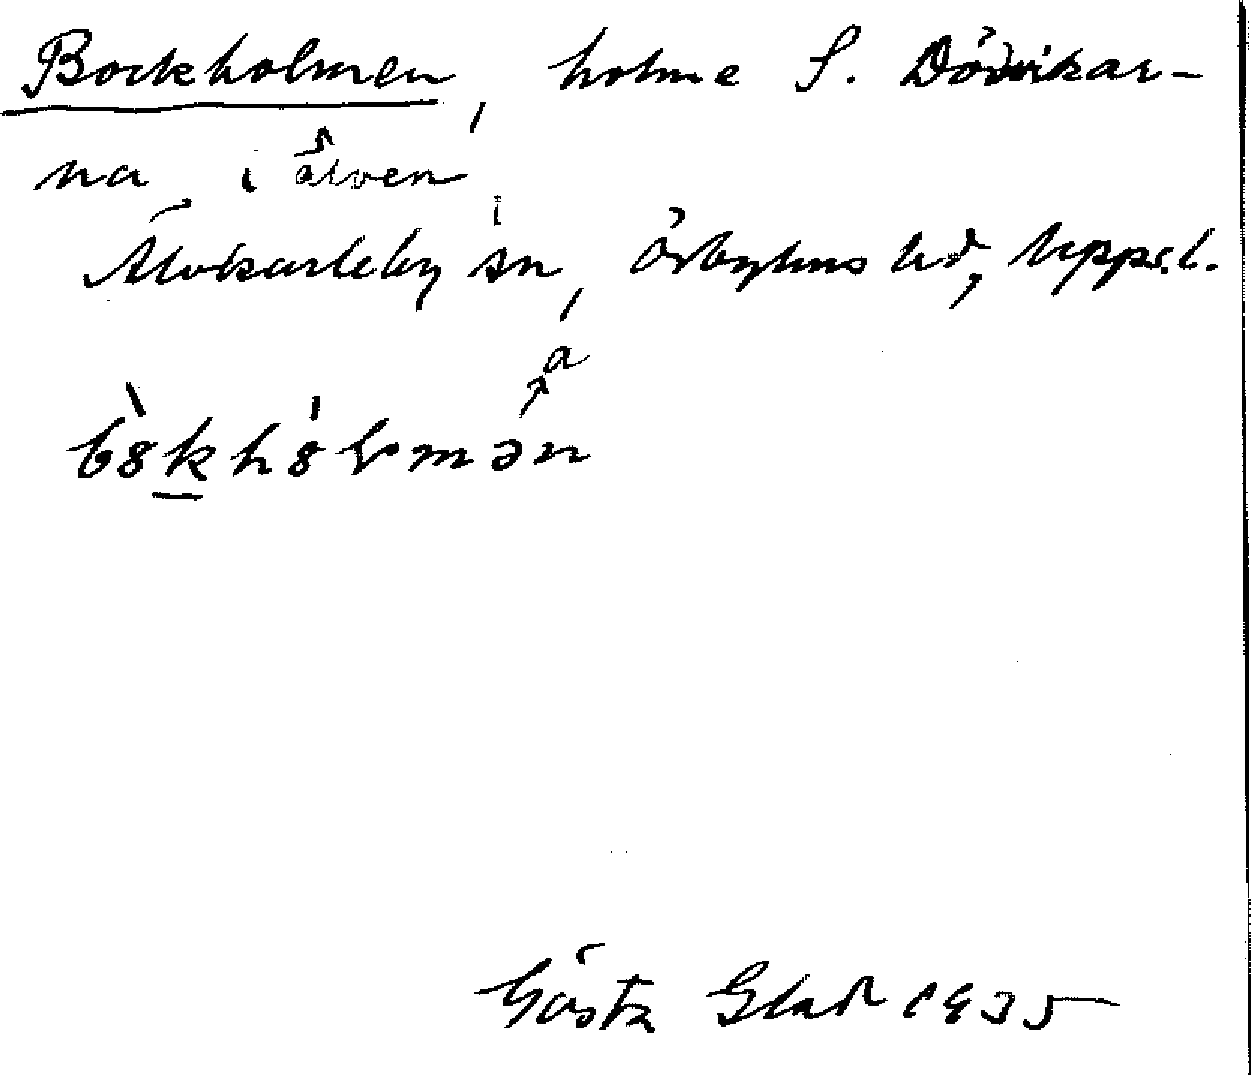 Bockholmen, holme S. Dödvikar-
na i älven
Älvkarleby sn, Örbyhus hd, Upps.l.
a
Gösta Glad 1935